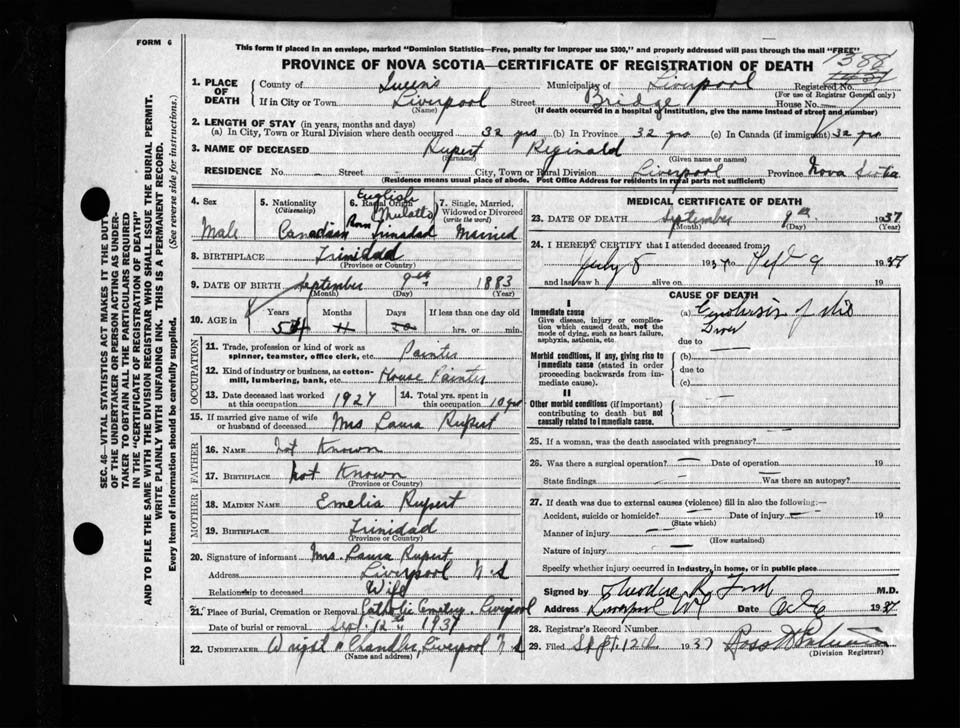 FORM 6
This form if placed in an envelope, marked "Dominion Statistics—Free, penalty for improper use $300," and properly addressed will pass through the mail "FREE"
PROVINCE OF NOVA SCOTIA—CERTIFICATE OF REGISTRATION OF DEATH
1388
1. PLACE OF DEATH County of Queens Municipality of Liverpool Registered No.
(For use of Registrar General only)
If in City or Town Liverpool Street Bridge House No.
(Name) (If death occurred in a hospital of institution, give the name instead of street and number)
2. LENGTH OF STAY (in years, months and days)
(a) In City, Town or Rural Division where death occurred 32 yrs (b) In Province 32 yrs (c) In Canada (if immigrant) 32 yrs
3. NAME OF DECEASED Rupert Reginald
(Surname) (Given name or names)
RESIDENCE No. - Street - City, Town or Rural Division Liverpool Province Nova Scotia
(Residence means usual place of abode. Post Office Address for residents in rural parts not sufficient)
4. Sex Male
5. Nationality (Citizenship) Canadian
6. Racial Origin English (Mulatto) Born Trinadad
7. Single, Married, Widowed or Divorced (write the word) Married
8. BIRTHPLACE Trinidad
(Province or Country)
9. DATE OF BIRTH September 9th 1883
(Month) (Day) (Year)
10. AGE in Years 54 Months 11 Days 20 If less than one day old
hrs. or min.
OCCUPATION
11. Trade, profession or kind of work as spinner, teamster, office clerk, etc. Painter
12. Kind of industry or business, as cotton-mill, lumbering, bank, etc. House Painter
13. Date deceased last worked at this occupation 1927 14. Total yrs. spent in this occupation 10 yrs
15. If married give name of wife or husband of deceased Mrs Laura Rupert
FATHER
16. NAME Not Known
17. BIRTHPLACE Not Known
(Province or Country)
MOTHER
18. MAIDEN NAME Emelia Rupert
19. BIRTHPLACE Trinidad
(Province or Country)
20. Signature of informant Mrs. Laura Rupert
Address Liverpool N.S
Relationship to deceased Wife
21. Place of Burial, Cremation or Removal Catholic Cemetery Liverpool
Date of burial or removal Sept. 12th 1937
22. UNDERTAKER Wright & Chandler, Liverpool N S
(Name and address)
MEDICAL CERTIFICATE OF DEATH
23. DATE OF DEATH September 9th 1937
(Month) (Day) (Year)
24. I HEREBY CERTIFY that I attended deceased from
July 8 1937 to Sept 9 1937
and last saw h alive on 19
CAUSE OF DEATH
I
Immediate cause
Give disease, injury, or complication which caused death, not the mode of dying, such as heart failure, asphyxia, asthenia, etc.
(a) Cirrhosis of the Liver
due to
Morbid conditions, if any, giving rise to immediate cause (stated in order proceeding backwards from immediate cause).
(b)
due to
(c)
II
Other morbid conditions (if important) contributing to death but not causally related to immediate cause.
25. If a woman, was the death associated with pregnancy?
26. Was there a surgical operation? Date of operation 19
State findings Was there an autopsy?
27. If death was due to external causes (violence) fill in also the following:—
Accident, suicide or homicide? Date of injury 19
(State which)
Manner of injury
(How sustained)
Nature of injury
Specify whether injury occurred in Industry, in home, or in public place
Signed by Theodore R Ford M.D.
Address Liverpool N.S. Date 1937
28. Registrar's Record Number
29. Filed Sept. 12th 1937
(Division Registrar)
SEC. 46—VITAL STATISTICS ACT MAKES IT THE DUTY
OF THE UNDERTAKER OR PERSON ACTING AS UNDER-
TAKER TO OBTAIN ALL THE PARTICULARS REQUIRED
IN THE "CERTIFICATE OF REGISTRATION OF DEATH"
AND TO FILE THE SAME WITH THE DIVISION REGISTRAR WHO SHALL ISSUE THE BURIAL PERMIT.
WRITE PLAINLY WITH UNFADING INK. THIS IS A PERMANENT RECORD.
Every item of information should be carefully supplied. (See reverse side for instructions.)